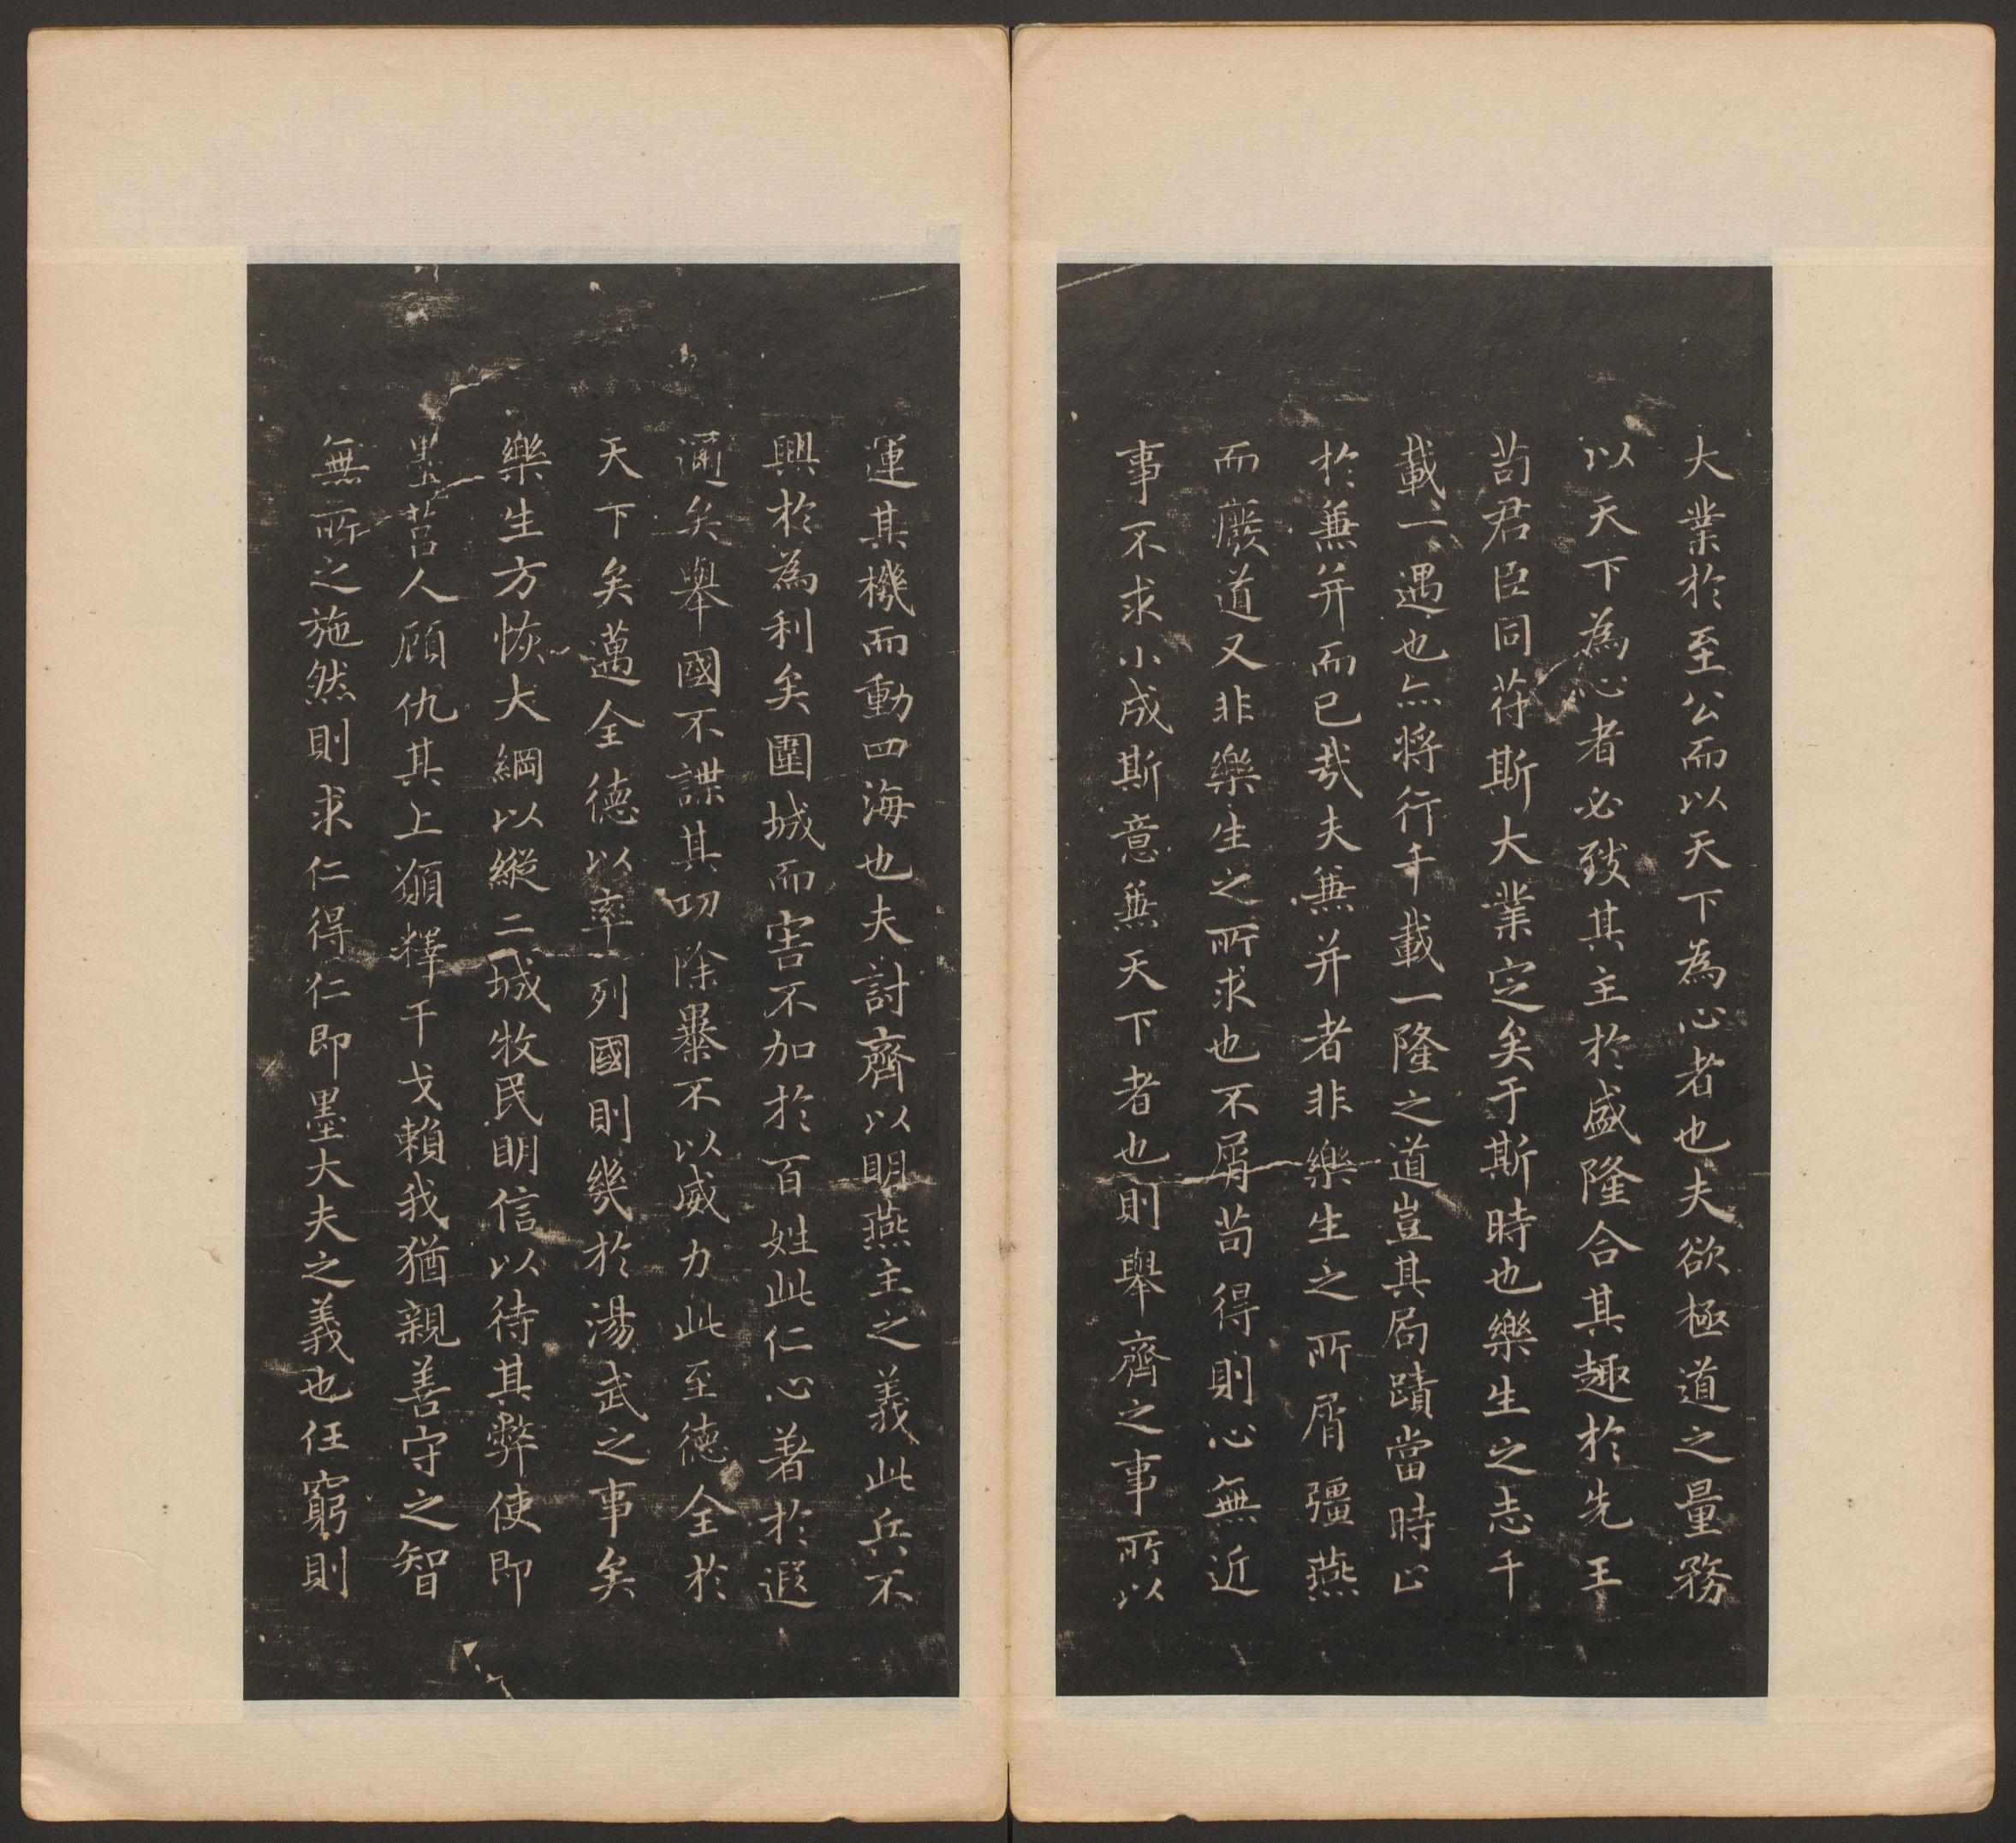 大業於至公而以天下為心者也夫欲極道之量務
以天下為心者必致其主於盛隆合其趣於先王
苟君臣同苻斯大業定矣于斯時也樂生之志千
載一遇也亦將行千載一隆之道豈其局蹟當時止
於兼并而已哉夫兼并者非樂生之所屑彊燕
而廢道又非樂生之所求也不屑苟得則心無近
事不求小成斯意兼天下者也則舉齊之事所以
運其機而動四海也夫討齊以明燕主之義此兵不
興於為利矣圍城而害不加於百姓此仁心著於遐
邇矣舉國不謀其功除暴不以威力此至德全於
天下矣邁全德以率列國則幾於湯武之事矣
樂生方恢大綱以縱二城牧民明信以待其弊使即
墨莒人顧仇其上願釋干戈賴我猶親善守之智
無所之施然則求仁得仁即墨大夫之義也任窮則